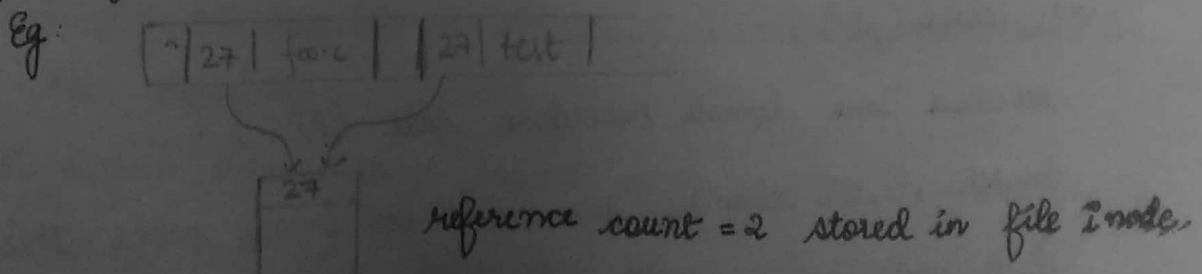 Eg:
27 foo.c 27 test
27
reference count = 2 stored in file inode.